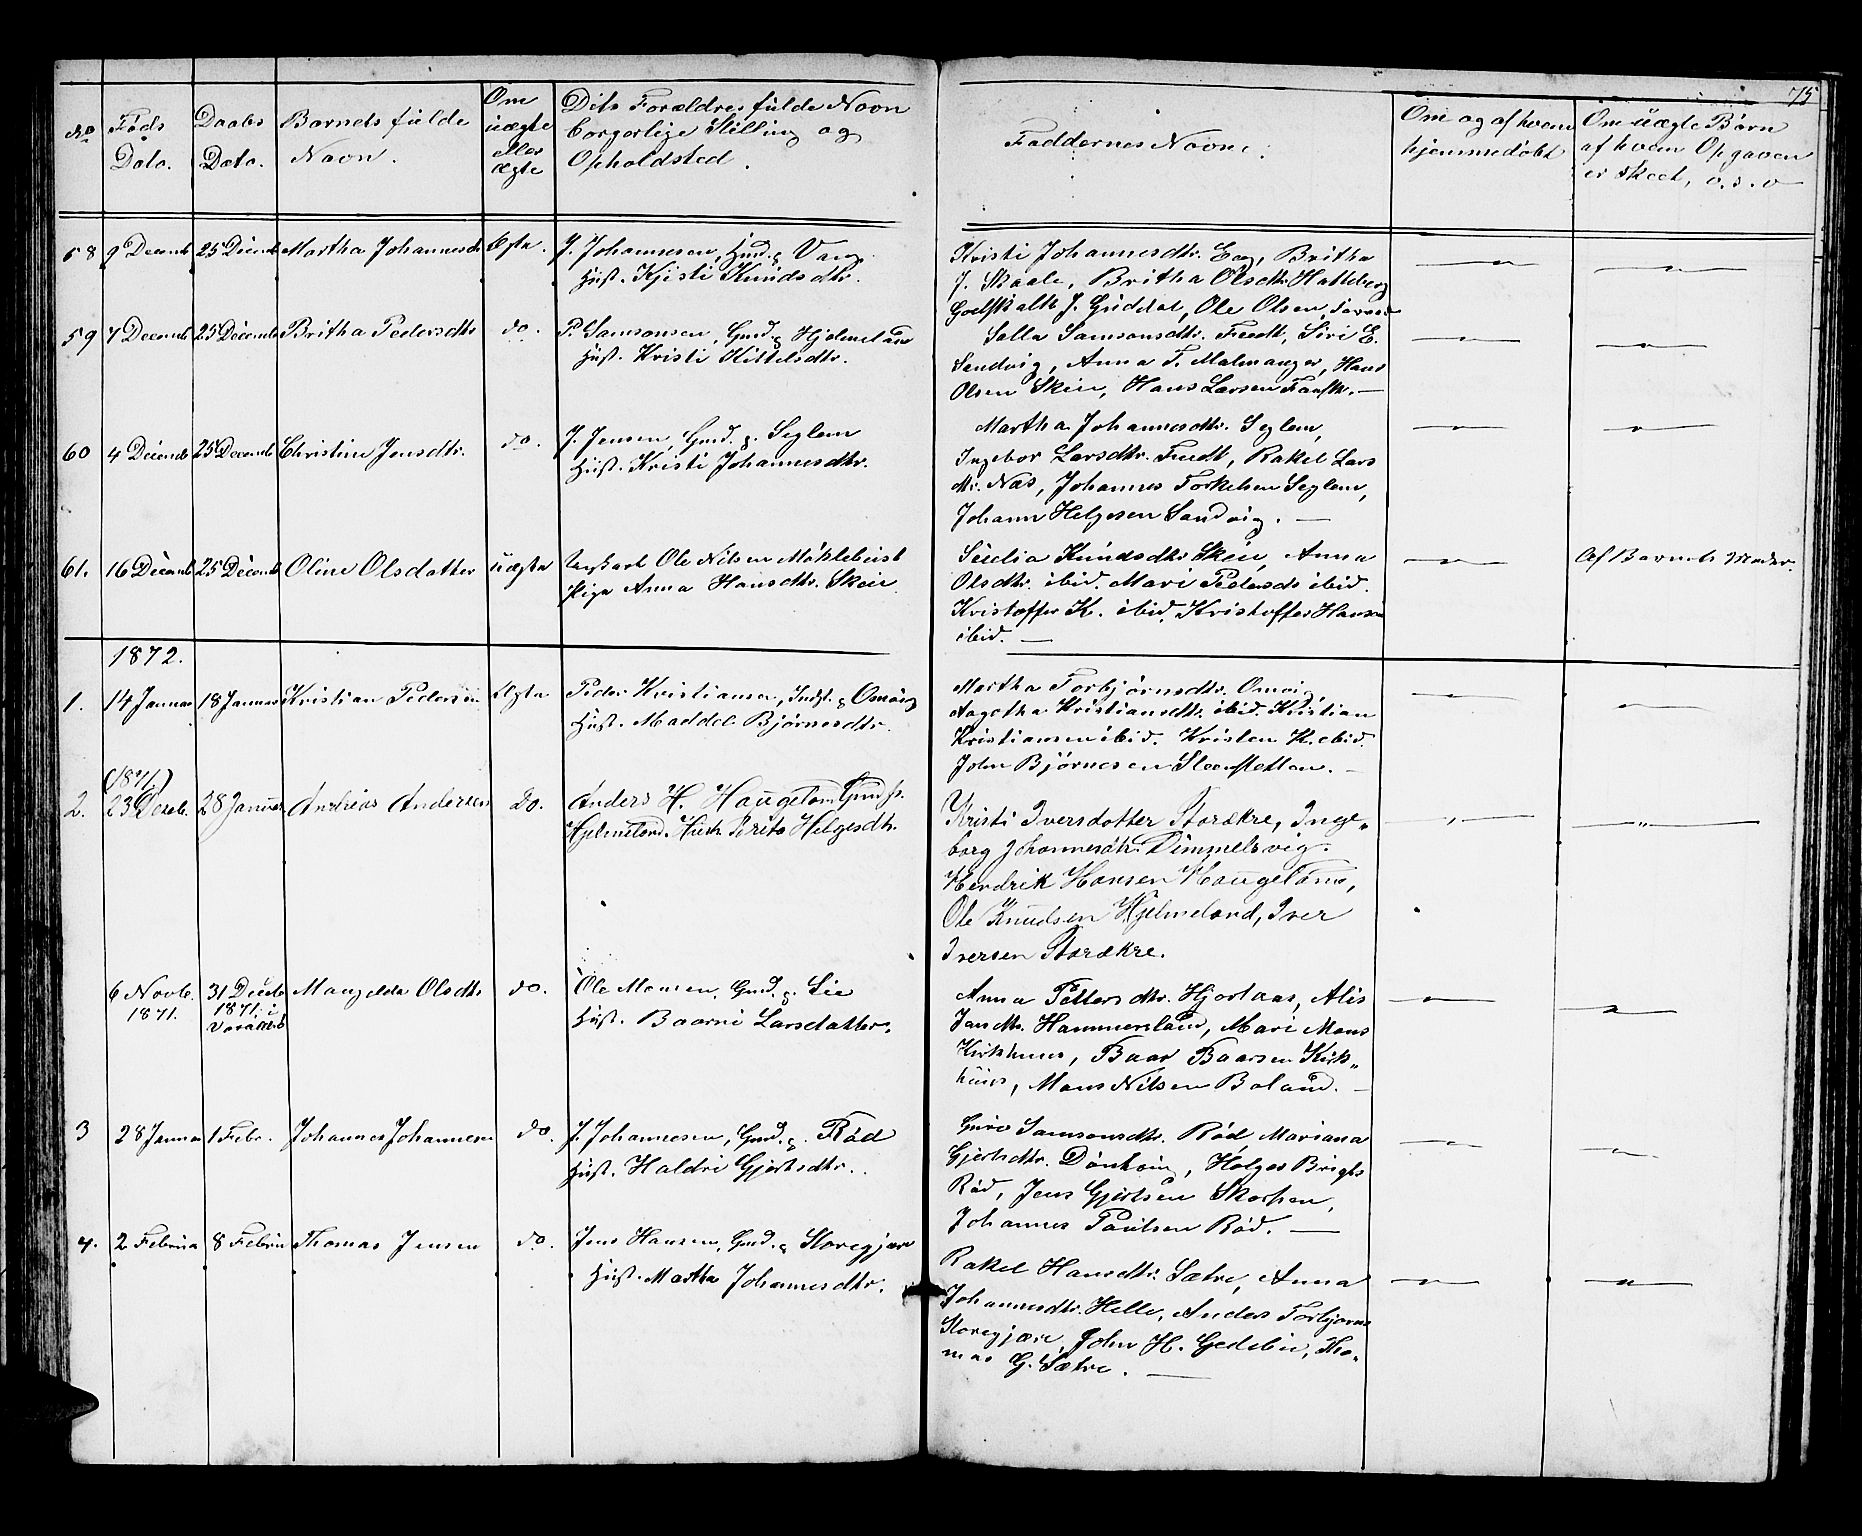 75
No
Føds
Dato.
Daabs
Dato.
Barnets fulde
Navn.
Om
uægte
eller
ægte
Dits Forældres fulde Navn
borgerlige Stilling og
Opholdsted.
Faddernes Navne.
Om og af hvem
hjemmedøbt
Om uægte Børn
af hvem Opgaven
er skeet, o. s. v
58 9 Decemb 25 Decemb Martha Johannesdt Ægte. J. Johannesen, Gmd. g Vang.
Hust. Kristi Knudsdtr.
Kristi Johannesdtr. Eeg, Britha
J. Skaale, Britha Olsdtr Hatteberg
Godskalk J. Guddal, Ole Olsen
59 7 Decemb 25 Decemb Britha Pedersdtr do. P. Samsonsen, Gmd. g Hjelmeland
Hust. Kristi Kittelsdtr.
Salla Samsonsdtr. Tvedt, Siri E.
Sendvig, Anna T. Malmanger, Hans
Olsen Skeie, Hans Larsen
60 4 Decemb 25 Decemb Christine Jensdtr. do. J. Jensen, Gmd. g. Seglem
Hust. Kristi Johannesdtr.
Martha Johannesdtr. Seglem,
Ingebor Larsdtr. Tvedt, Rakel Lars
dtr. Næs, Johannes Torkelsen Seglem,
Johann Helgesen Sandvig.
61. 16 Decemb 25 Decemb Oline Olsdatter uægte Ungkarl Ole Nilsen Møklebust
Pige Anna Hansdtr. Skeie
Knudsdtr. Skeie, Anna
Olsdtr. ibid. Mari Pedersdt ibid.
Kristoffer K. ibid. Kristoffer Hansen
ibid.
Af Barnets Moder.
1872.
1. 14 Januar 18 Januar Kristian Pedersen Ægte Peder Kristiansen, Indst. g Omvig
Hust. Maddel Bjørnesdtr.
Martha Torbjørnsdtr. Omvig
Aagotha Kristiansdtr. ibid. Kristian
Kristiansen ibid. Kristen K. ibid.
John Bjørnesen
2. (1871)
23 Deceb. 28 Januar Andreas Andersen Do. Anders H. Haugeland Gmd p.
Hjelmeland. Hust. Brita Helgesdtr.
Kristi Iversdotter Storækre, Inge-
borg Johannesdtr. Dimmelsvig.
Hendrik Hansen Haugeland,
Ole Knudsen Hjelmeland, Iver
Iversen Storækre.
6 Novb.
1871.
31 Deceb
1871 i
Maugelda Olsdtr do. Ole Monsen, Gmd. g. Lie
Hust. Baarni Larsdatter.
Anna Pettersdtr. Hjortaas, Alis
Jansdtr. Hammersland, Mari Mons
Kirkhuus, Baar Baarsen Kirk-
huus, Mons Nilsen Boland.
3 28 Januar 1 Febr. Johannes Johannesen do. J. Johannesen, Gmd. g. Rød
Hust. Haldri Gjertsdtr.
Guro Samsonsdtr. Rød Mariana
Gjertsdtr. Dønhovig, Helges Brigts
Rød, Jens Gjertsen Skorpen,
Johannes Paulsen Rød.
4. 2 Februa 8 Februa Thomas Jensen do. Jens Hansen, Gmd. g Storegjære
Hust. Martha Johannesdtr.
Rakel Hansdtr. Sætre, Anna
Johannesdtr. Helle, Anders Torbjørns
Storegjære, John H. Gedebu, Tho-
mas G. Sætre.